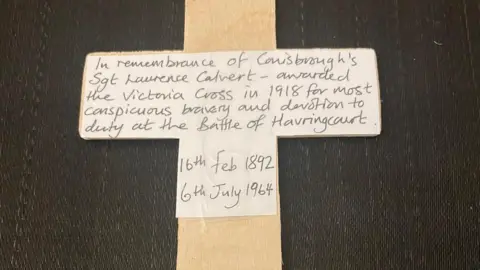 In remembrance of Conisbrough's
Sgt Laurence Calvert - awarded
the Victoria Cross in 1918 for most
conspicuous bravery and devotion to
duty at the Battle of Havringcourt.
16th Feb 1892
6th July 1964